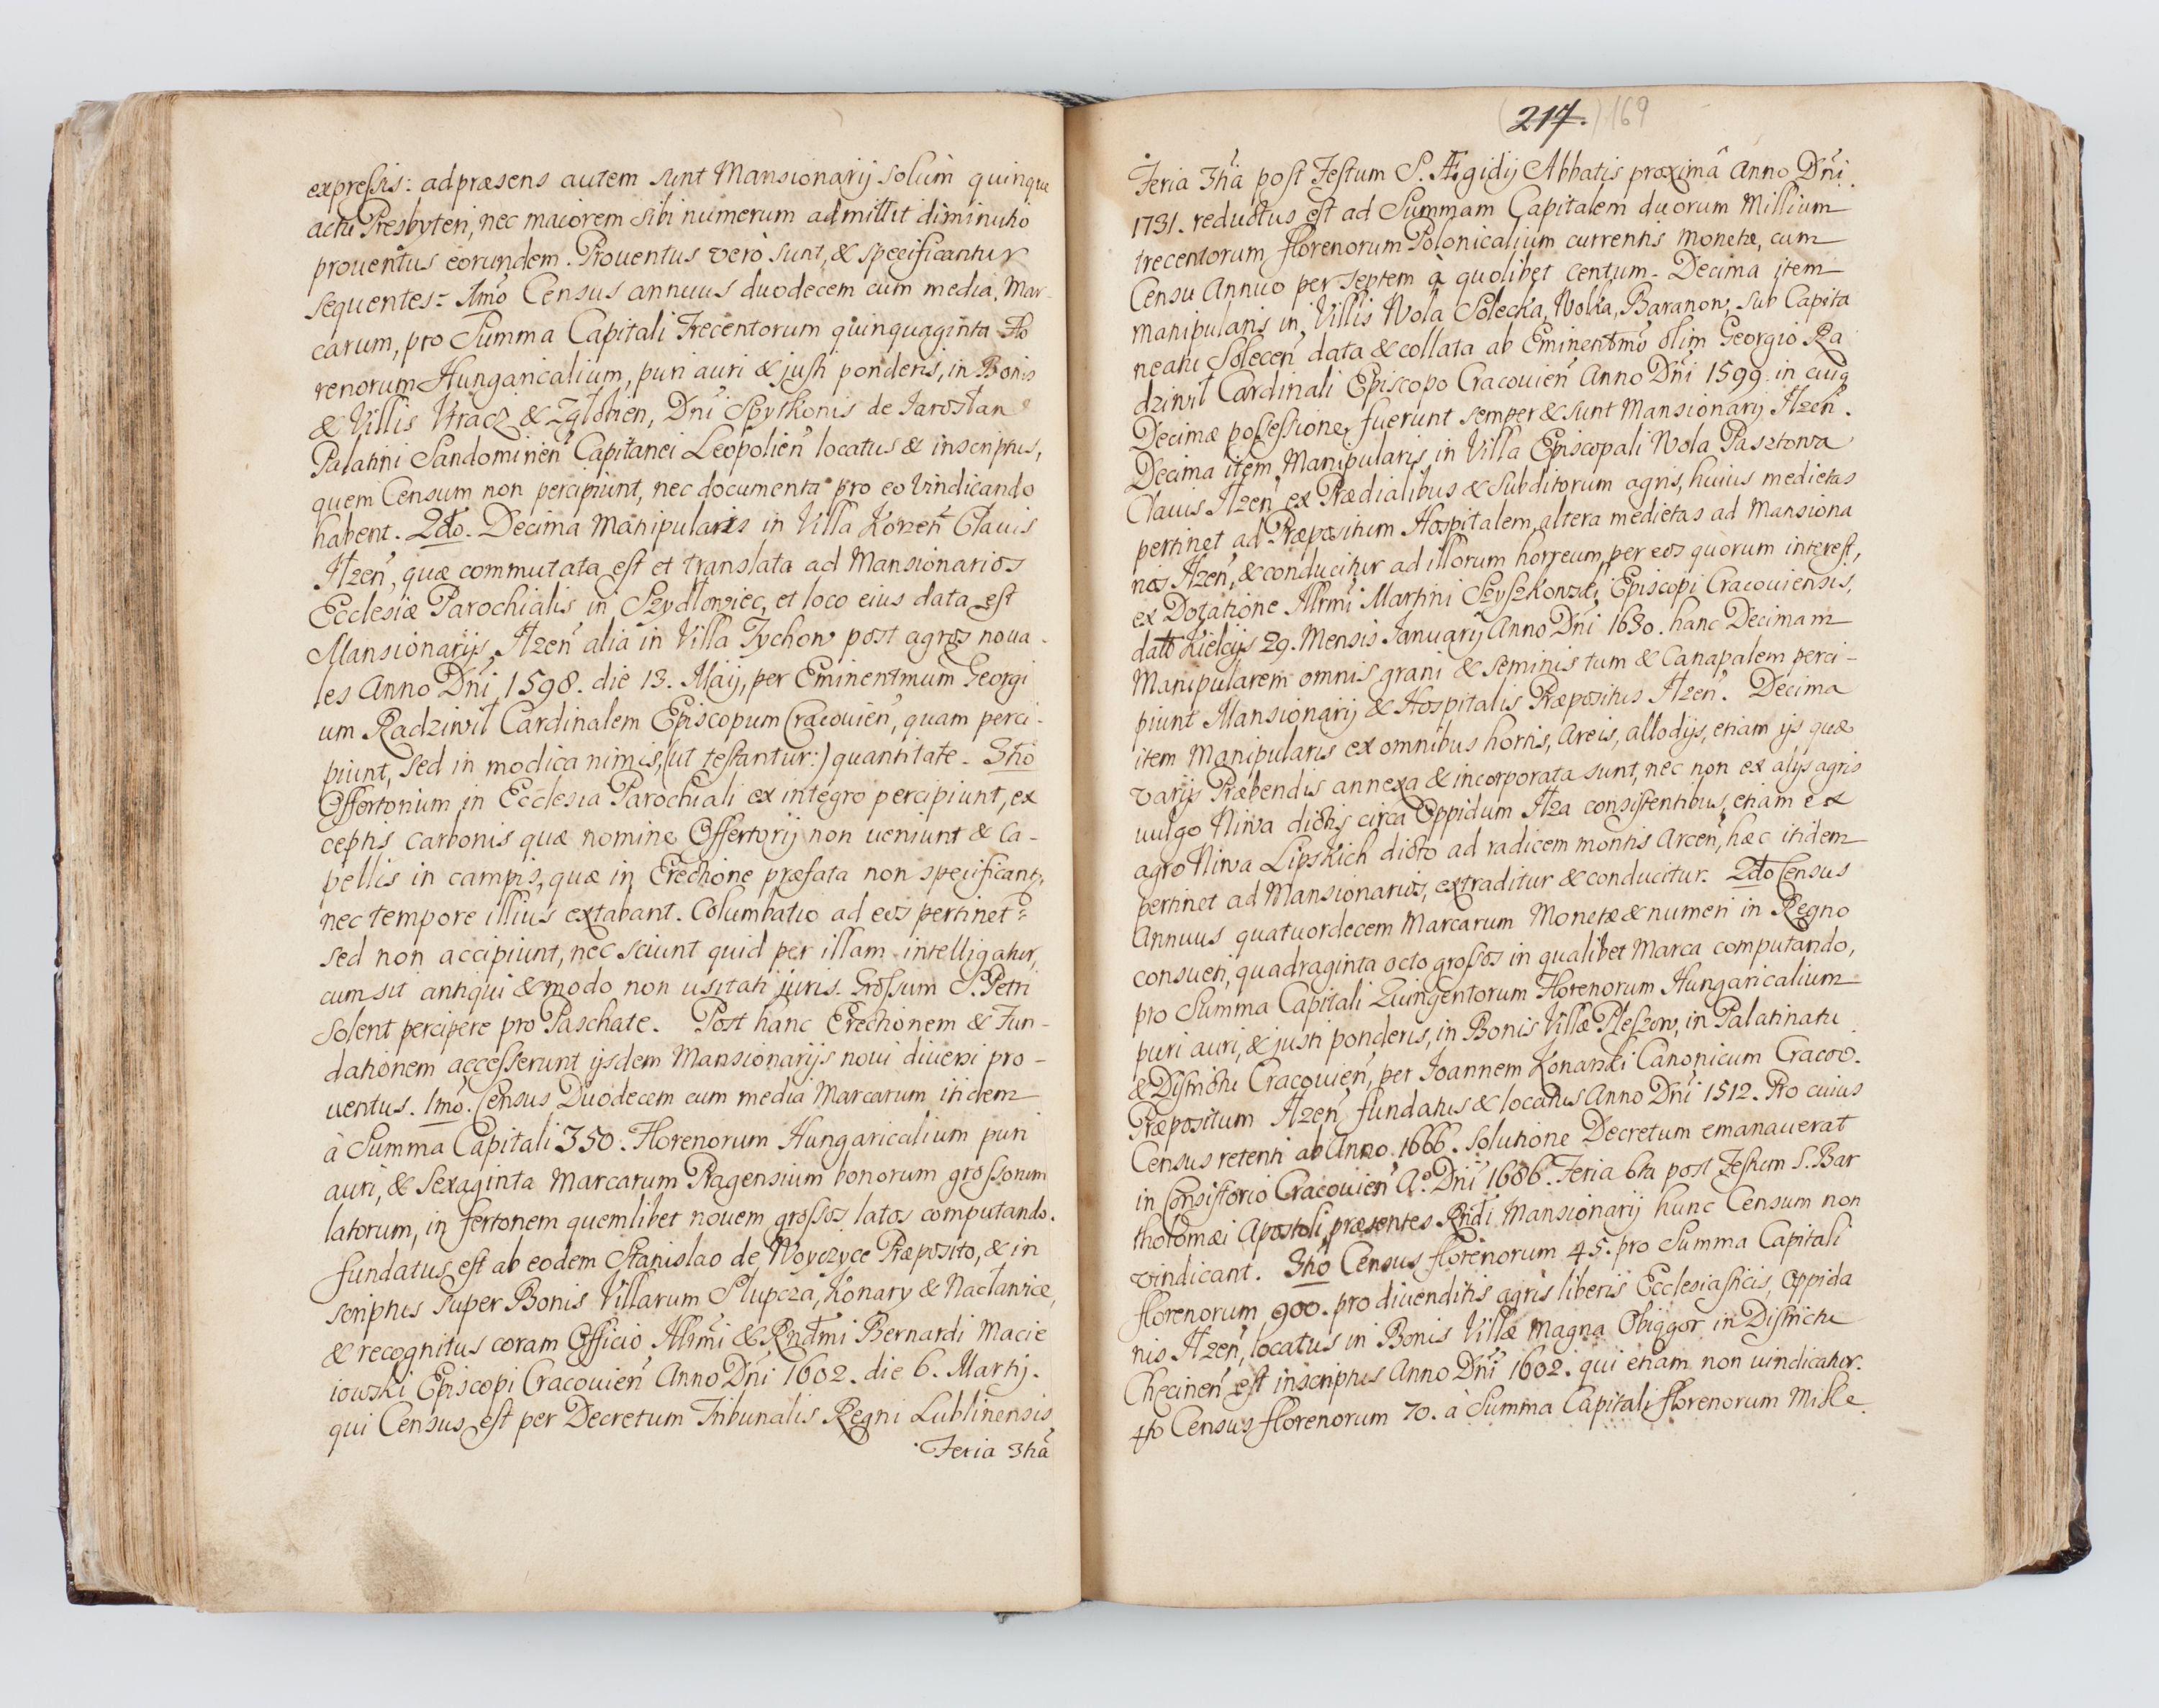 expressis: ad præsens autem sunt Mansionarij solùm quinque
actu Presbyteri, nec maiorem sibi numerum admittit diminutio
prouentus eorundem. Prouentus verò sunt, & specificantur
sequentes: 1mo Census annuus duodecem cum media Mar-
carum, pro Summa Capitali Trecentorum quinquaginta Flo
renorum Hungaricalium, puri auri & justi ponderis, in Bonis
& Villis & Zglobien, Dni Spytkonis de Jarosłau
Palatini Sandomirien Capitanei Leopolien locatus & inscriptus,
quem Censum non percipiunt, nec documenta pro eo vindicando
habent. 2do. Decima Manipularis in Villa Clauis
Ilzen, quæ commutata est et translata ad Mansionarios
Ecclesiæ Parochialis in Szydłowiec, et loco eius data est
Mansionarijs Ilzen alia in Villa Tychow post agros noua-
les Anno Dni 1598. die 13. Maij, per Eminentmum Georgi
um Radziwil Cardinalem Episcopum Cracouien, quam perci-
piunt, sed in modica nimis, (ut testantur:) quantitate. 3tio
Offertorium in Ecclesia Parochiali ex integro percipiunt, ex
ceptis carbonis quæ nomine Offertorij non ueniunt & Ca-
pellis in campis, quæ in Erectione præfata non specificantr,
nec tempore illius extabant. Columbatio ad eos pertinet:
sed non accipiunt, nec sciunt quid per illam intelligatur,
cum sit antiqui & modo non usitati juris. Grossum S. Petri
solent percipere pro Paschate. Post hanc Erectionem & Fun-
dationem accesserunt ijsdem Mansionarijs noui diuersi pro-
uentus. 1mo. Census Duodecem cum media Marcarum itidem
à Summa Capitali 350. Florenorum Hungaricalium puri
auri, & sexaginta Marcarum Pragensium bonorum grossorum
latorum, in fertonem quemlibet nouem grossos latos computando.
fundatus est ab eodem Stanislao de Woyczyce Præposito, & in
scriptus super Bonis Villarum Słupcza, Konary & Nacławice,
& recognitus coram Officio Illrmi & Rndmi Bernardi Macie
iowski Episcopi Cracouien Anno Dni 1602. die 6. Martij.
qui Census est per Decretum Tribunalis Regni Lublinensis
Feria 3tia
(217.) 169
Feria 3tia post Festum S. Ægidij Abbatis proximâ Anno Dni
1731. reductus est ad Summam Capitalem duorum Millium
trecentorum florenorum Polonicalium currentis monetæ, cum
Censu Annuo per septem à quolibet centum. Decima item
manipularis in Villis Wola Solecka, Wolka, Baranow, sub Capita
neatu Solecen data & collata ab Eminentmo olim Georgio Ra
dziwil Cardinali Episcopo Cracouien Anno Dni 1599. in cuig
Decimæ possessione, fuerunt semper & sunt Mansionarij Ilzen.
Decima item Manipularis in Villa Episcopali Wola Pasztowa
Clauis Ilzen ex Prædialibus & Subditorum agris, huius medietas
pertinet ad Præpositum Hospitalem, altera medietas ad Mansiona
rios Ilzen, & conducitur ad illorum horreum, per eos quorum interest,
ex Dotatione Illrmi Martini Szyszkowski Episcopi Cracouiensis,
datt Kielcijs 29. Mensis Januarij Anno Dni 1630. hanc Decimam
Manipularem omnis grani & seminis tum & Canapalem perci-
piunt Mansionarij & Hospitalis Præpositus Ilzen. Decima
item Manipularis ex omnibus hortis, areis, allodijs, etiam ijs quæ
varijs Præbendis annexa & incorporata sunt, nec non ex alijs agris
uulgo Niwa dictis circa Oppidum Ilza consistentibus, etiam ex
agro Niwa Lipskich dicto ad radicem montis Arcen, hæc itidem
pertinet ad Mansionarios, extraditur & conducitur. 2do Census
Annuus quatuordecem Marcarum Monetæ & numeri in Regno
consueti, quadraginta octo grossos in qualibet Marca computando,
pro Summa Capitali Quingentorum Florenorum Hungaricalium
puri auri, & justi ponderis, in Bonis Villæ Pleszow, in Palatinatu
& Districtu Cracouien, per Joannem Konarski Canonicum Cracov.
Præpositum Ilzen fundatus & locatus Anno Dni 1512. Pro cuius
Census retenti ab Anno 1666. solutione Decretum emanauerat
in Consistorio Cracouien Ao. Dni 1686. Feria 6ta post Festum S. Bar
tholomæi Apostoli, præsentes Rndi Mansionarij hunc Censum non
vindicant. 3tio Census florenorum 45. pro Summa Capitali
florenorum 900. pro diuenditis agris liberis Ecclesiasticis, Oppida
nis Ilzen, locatus in Bonis Villæ Magna Obiggor in Districtu
Checinen est inscriptus Anno Dni 1602. qui etiam non uindicatur.
4to Census florenorum 70. à Summa Capitali florenorum Mille